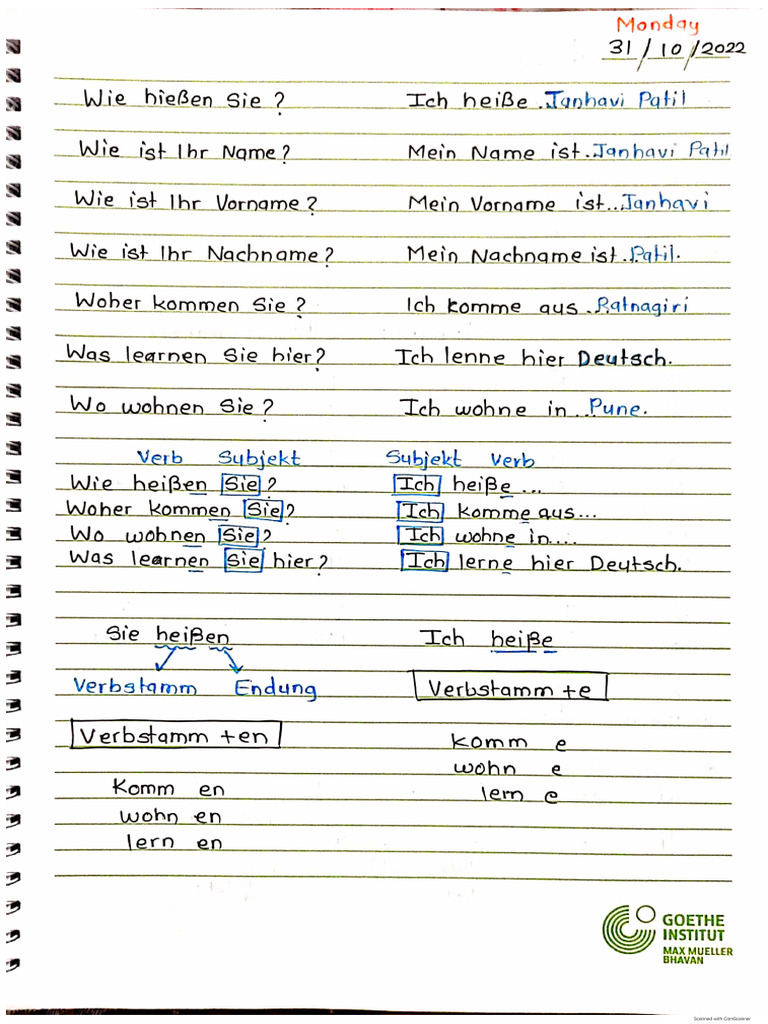 Monday
31/10/2022
Wie hießen Sie? Ich heiße .Janhavi Patil
Wie ist Ihr Name? Mein Name ist..Janhavi Patil
Wie ist Ihr Vorname? Mein Vorname ist...Janhavi
Wie ist Ihr Nachname? Mein Nachname ist..Patil.
Woher kommen Sie? Ich komme aus ..Ratnagiri
Was learnen Sie hier? Ich lenne hier Deutsch.
Wo wohnen Sie? Ich wohne in ..Pune.
Verb Subjekt Subjekt Verb
Wie heißen Sie? Ich heiße ...
Woher kommen Sie? Ich komme aus...
Wo wohnen Sie? Ich wohne in....
Was learnen Sie hier? Ich lerne hier Deutsch.
Sie heißen Ich heiße
Verbstamm Endung Verbstamm +e
Verbstamm +en komm e
wohn e
Komm en lern e
wohn en
lern en
GOETHE
INSTITUT
MAX MUELLER
BHAVAN
Scanned with CamScanner